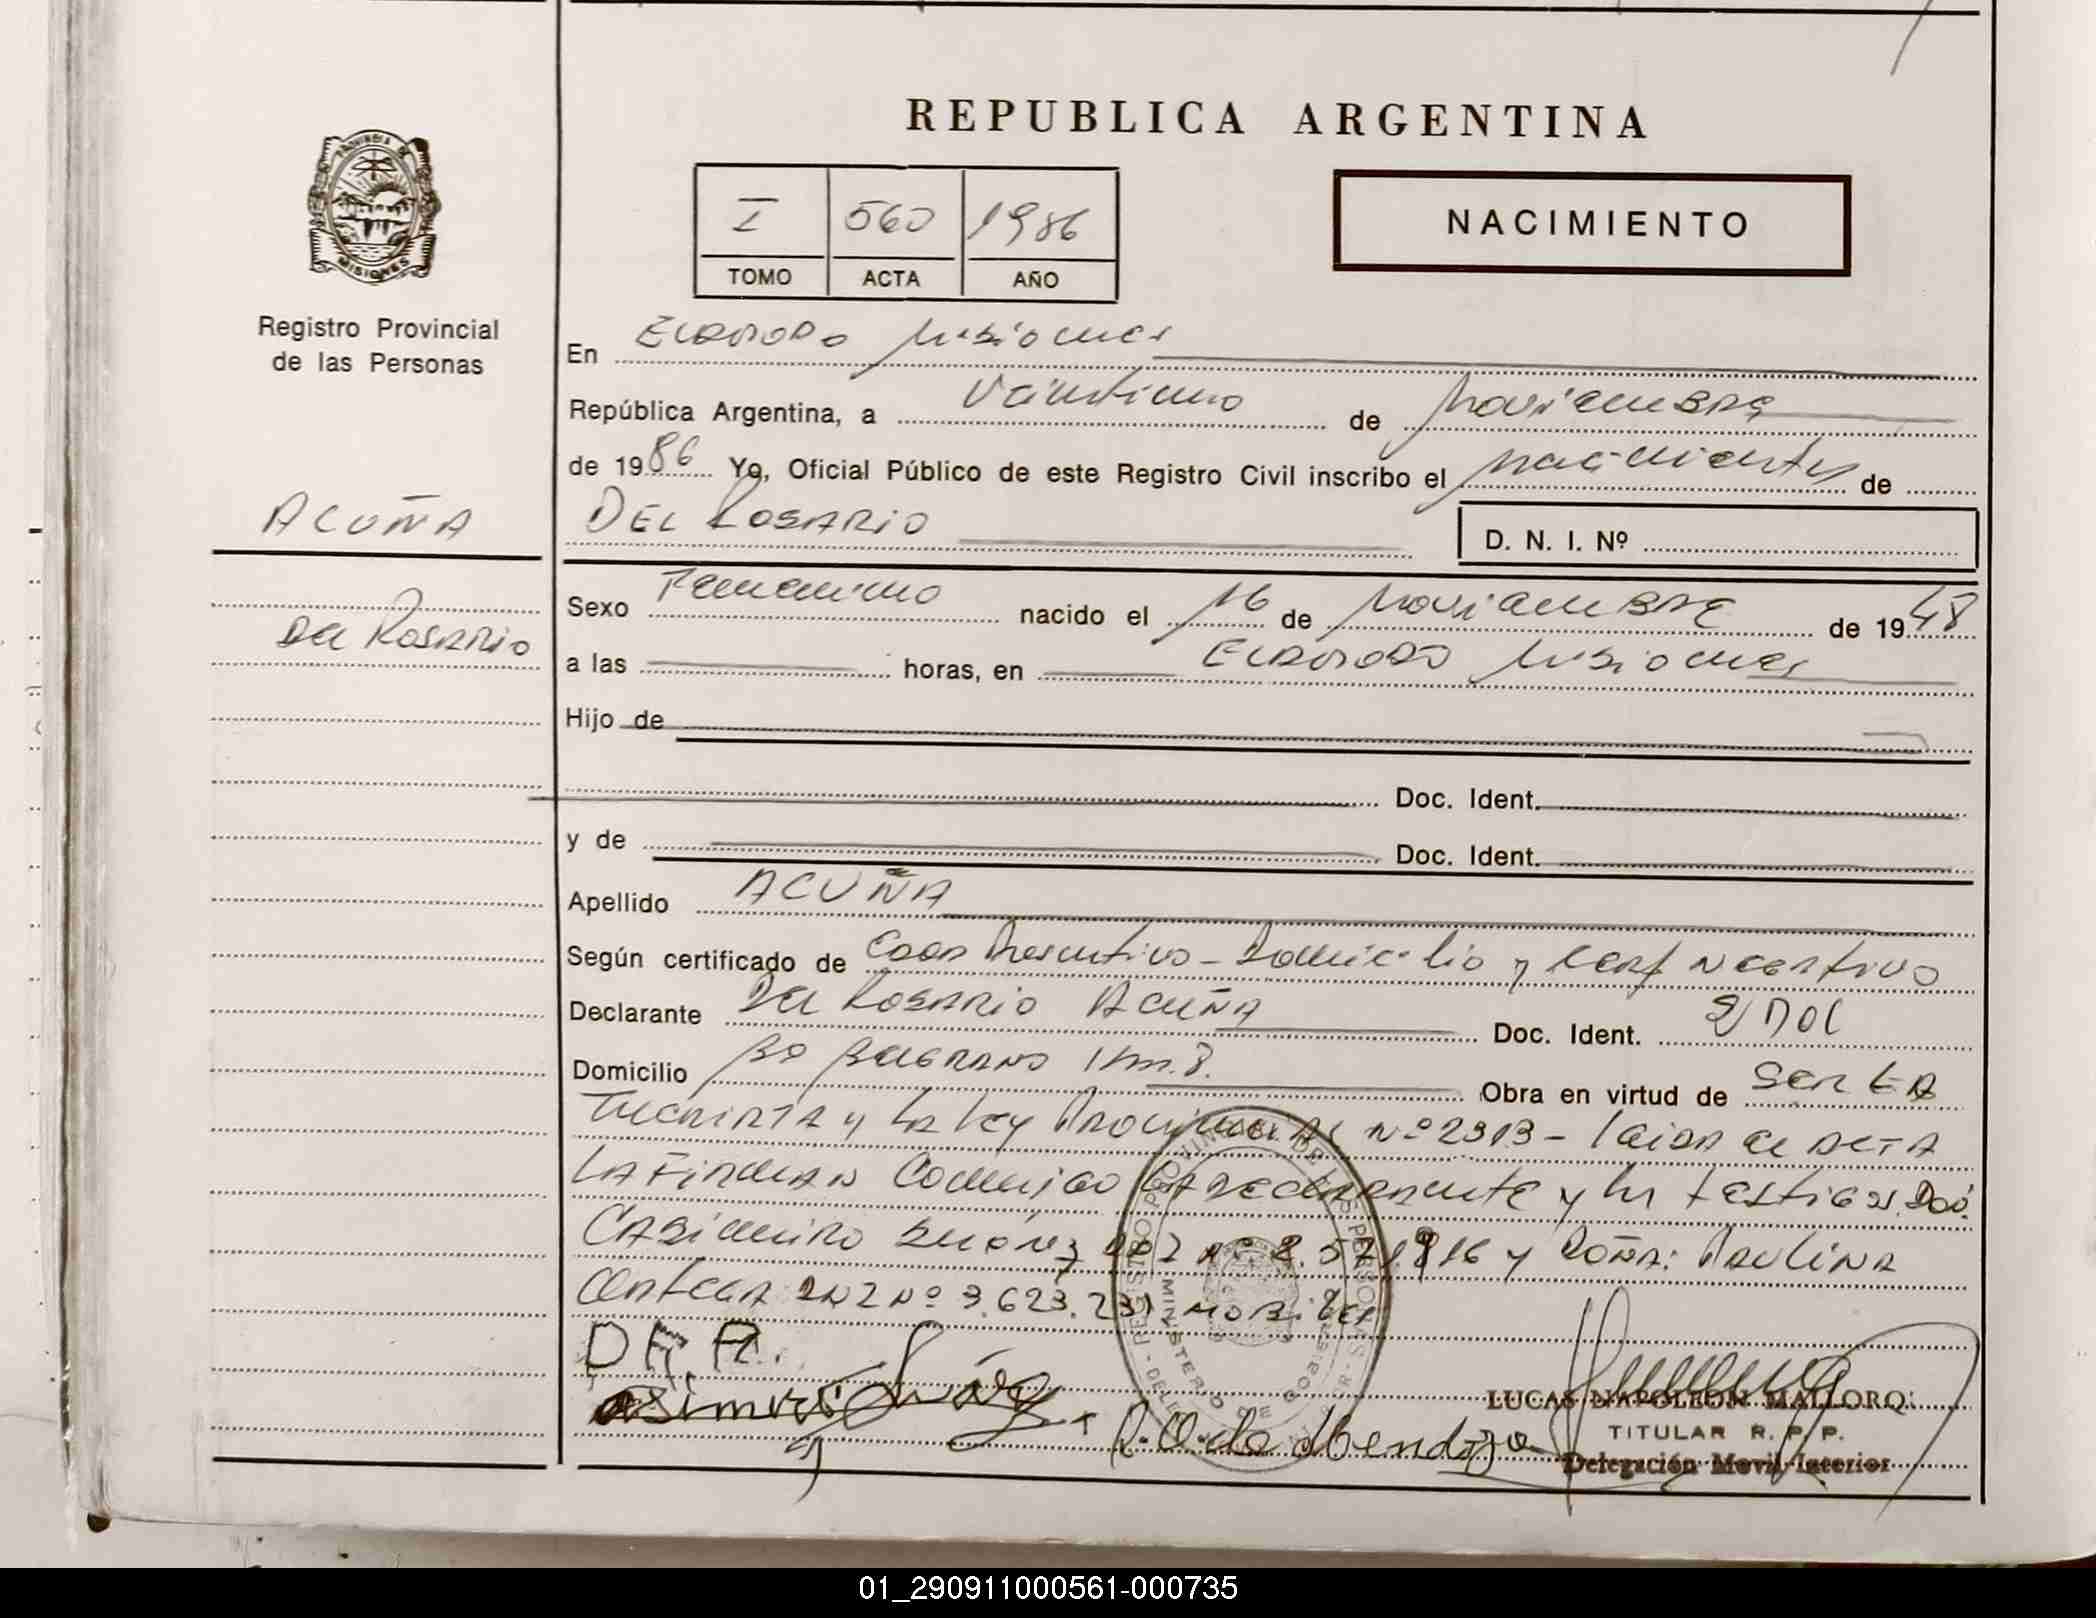 REPUBLICA ARGENTINA
PROVINCIA DE
MISIONES
I 560 1986
TOMO ACTA AÑO
NACIMIENTO
Registro Provincial
de las Personas
En ELDORADO Misiones
República Argentina, a Veintiuno de Noviembre
de 1986 Yo, Oficial Público de este Registro Civil inscribo el nacimiento de
DEL ROSARIO
D. N. I. Nº
ACUÑA
Del Rosario
Sexo Femenino nacido el 16 de Noviembre de 1948
a las horas, en ELDORADO Misiones
Hijo de
Doc. Ident.
y de Doc. Ident.
Apellido ACUÑA
Según certificado de Domicilio y Negativo
Declarante Del Rosario Acuña Doc. Ident. S/DOC
Domicilio Bº Belgrano Km.8. Obra en virtud de
y la Ley Provincial Nº 2313 - Leida el acta
la firman conmigo la declarante y los testigos Don:
Casimiro Nº 8.571.816 y Doña: Paulina
Ortega DNI Nº 3.623.231
D. R. A.
Casimiro Suárez
P. O. de Mendoza
REGISTRO PROVINCIAL DE LAS PERSONAS
MINISTERIO DE GOBIERNO
LUCAS NAPOLEON MALLORQ
TITULAR R. P. P.
Delegación Movil Interior
01_290911000561-000735